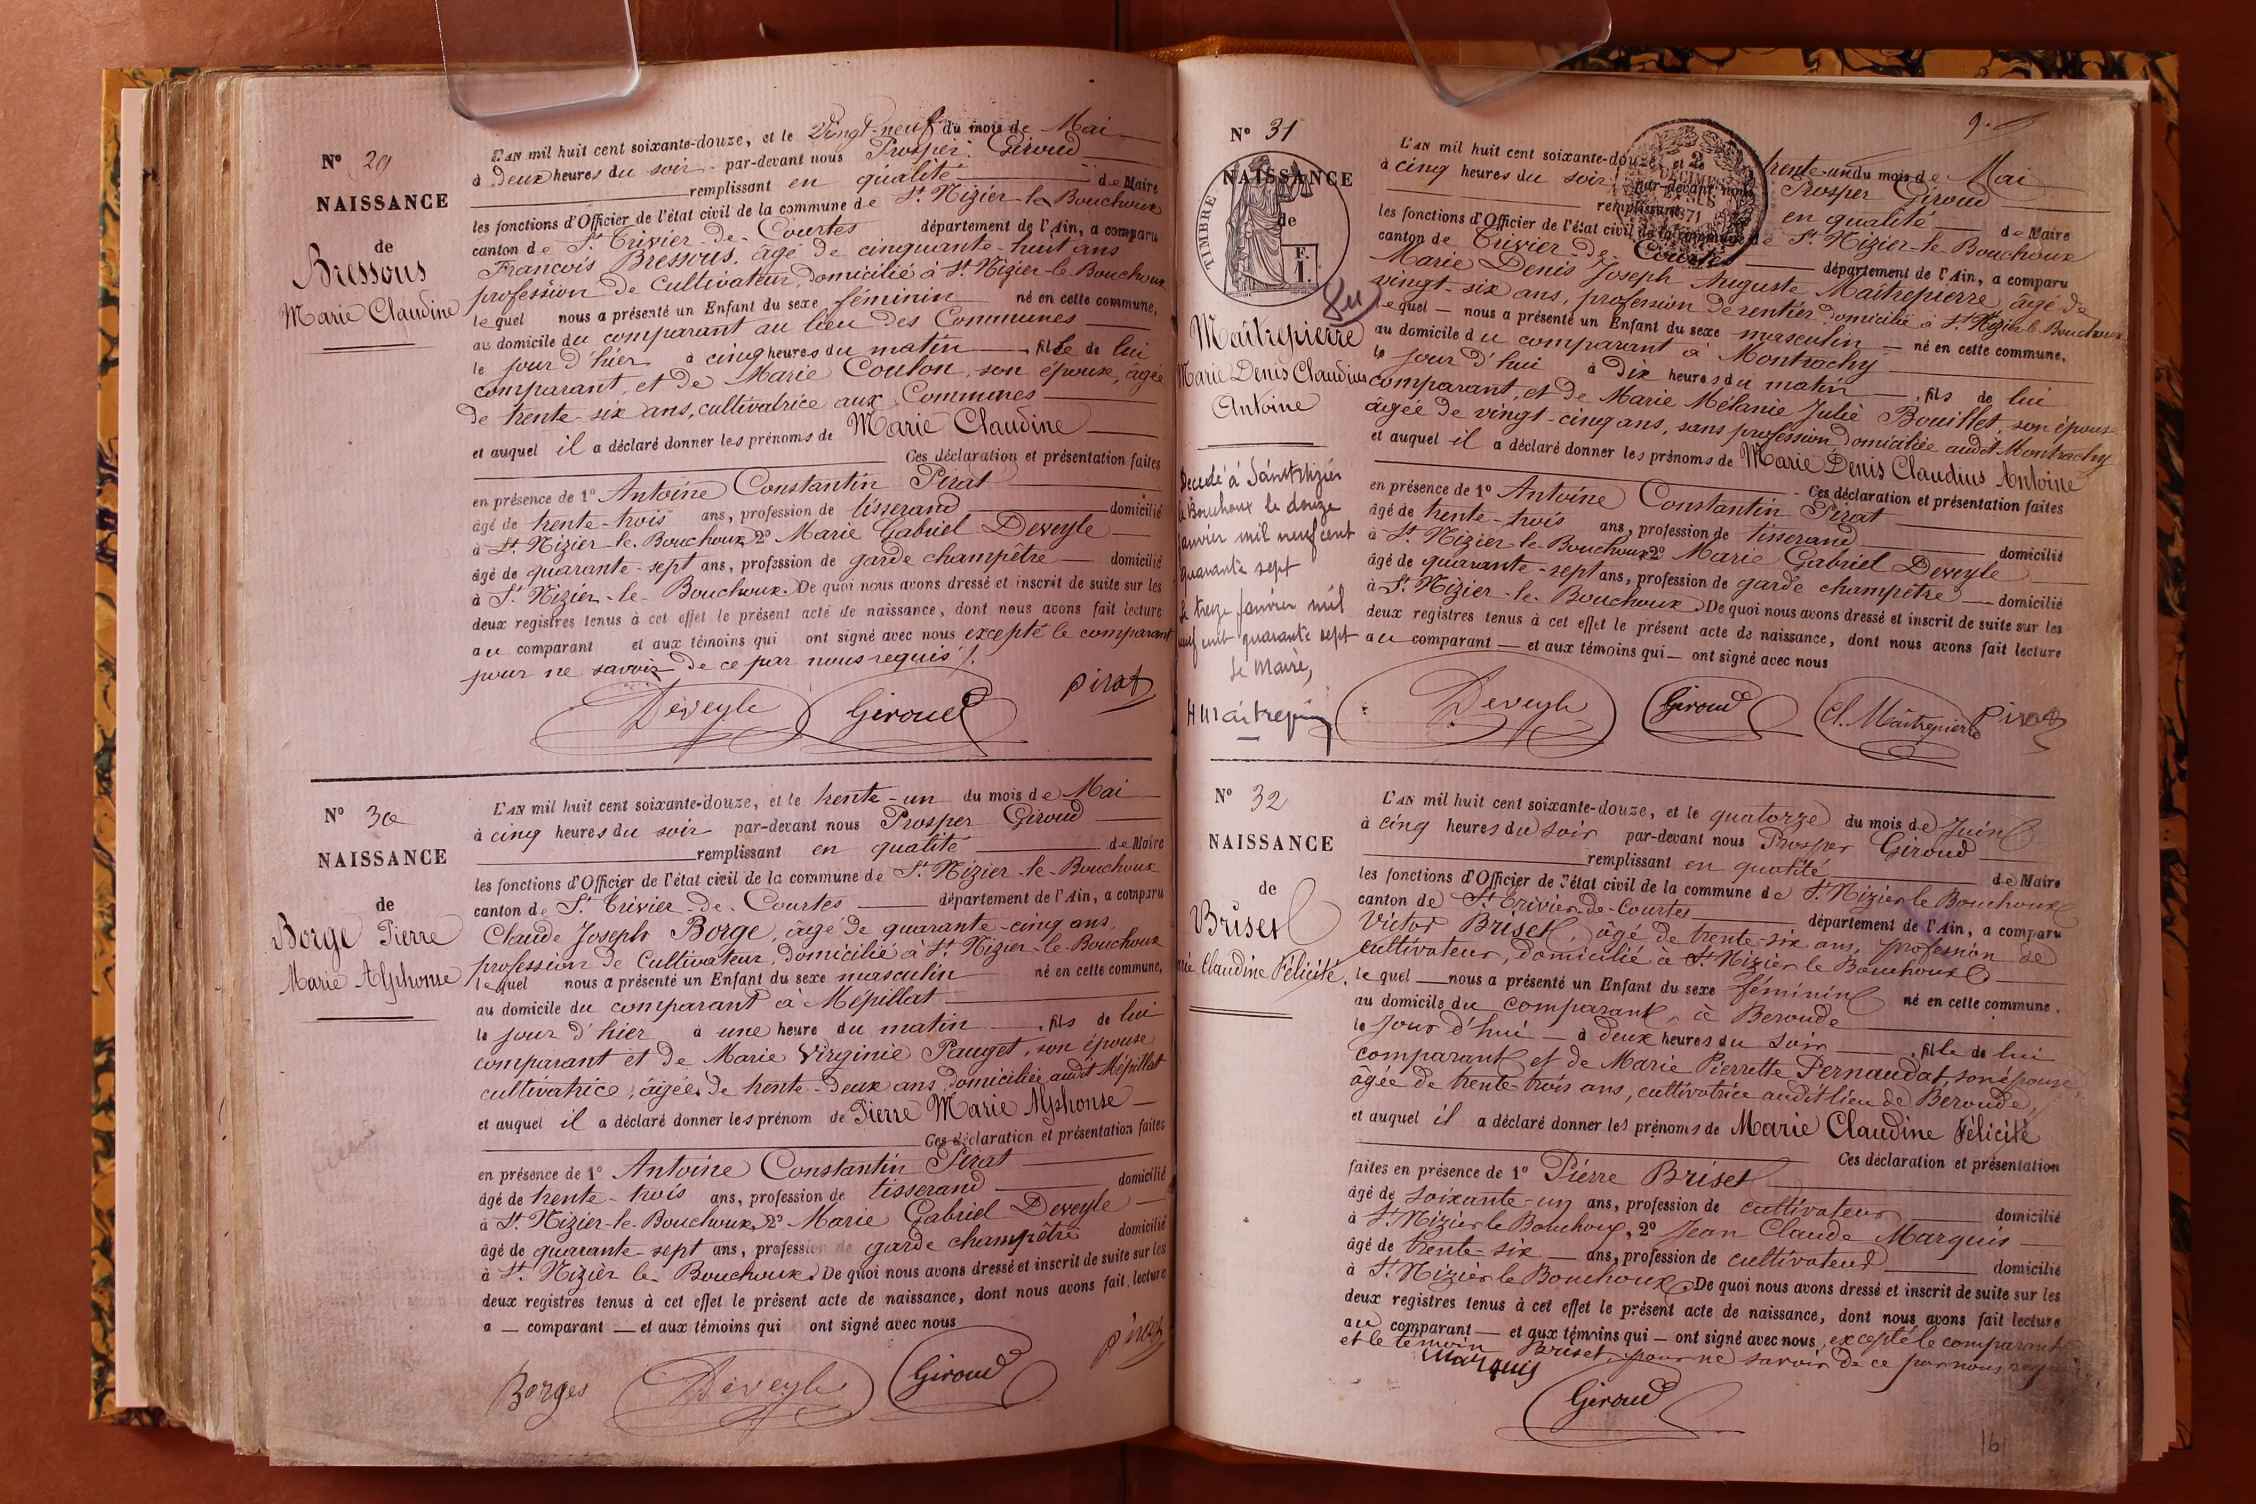 N° 29
NAISSANCE
de
Bressous
Marie Claudine
L'AN mil huit cent soixante-douze, et le Vingt-neuf du mois de Mai
à deux heures du soir par-devant nous Prosper Giroud
remplissant en qualité de Maire
les fonctions d'Officier de l'état civil de la commune de St Nizier-le-Bouchoux
canton de St Trivier-de-Courtes département de l'Ain, a comparu
François Bressous, âgé de cinquante-huit ans
profession de Cultivateur, domicilié à St Nizier-le-Bouchoux
lequel nous a présenté un Enfant du sexe féminin né en cette commune,
au domicile du comparant au lieu des Communes
le jour d'hier à cinq heures du matin, fille de lui
comparant, et de Marie Coulon, son épouse, âgée
de trente-six ans, cultivatrice aux Communes
et auquel il a déclaré donner les prénoms de Marie Claudine
Ces déclaration et présentation faites
en présence de 1° Antoine Constantin Pirat
âgé de trente-trois ans, profession de tisserand domicilié
à St Nizier-le-Bouchoux, 2° Marie Gabriel Deveyle
âgé de quarante-sept ans, profession de garde champêtre domicilié
à St Nizier-le-Bouchoux. De quoi nous avons dressé et inscrit de suite sur les
deux registres tenus à cet effet le présent acte de naissance, dont nous avons fait lecture
au comparant et aux témoins qui ont signé avec nous excepté le comparant
pour ne savoir de ce par nous requis /.
Deveyle Giroud Pirat
N° 30
NAISSANCE
de
Borge Pierre
Marie Alphonse
L'AN mil huit cent soixante-douze, et le trente-un du mois de Mai
à cinq heures du soir par-devant nous Prosper Giroud
remplissant en qualité de Maire
les fonctions d'Officier de l'état civil de la commune de St Nizier-le-Bouchoux
canton de St Trivier-de-Courtes département de l'Ain, a comparu
Claude Joseph Borge, âgé de quarante-cinq ans,
profession de Cultivateur, domicilié à St Nizier-le-Bouchoux
lequel nous a présenté un Enfant du sexe masculin né en cette commune,
au domicile du comparant à Mépillat
le jour d'hier à une heure du matin, fils de lui
comparant et de Marie Virginie Pauget, son épouse
cultivatrice, âgée de trente-deux ans, domiciliée audit Mépillat
et auquel il a déclaré donner les prénom de Pierre Marie Alphonse
Ces déclaration et présentation faites
en présence de 1° Antoine Constantin Pirat
âgé de trente-trois ans, profession de tisserand domicilié
à St Nizier-le-Bouchoux, 2° Marie Gabriel Deveyle
âgé de quarante-sept ans, profession de garde champêtre domicilié
à St Nizier le Bouchoux. De quoi nous avons dressé et inscrit de suite sur les
deux registres tenus à cet effet le présent acte de naissance, dont nous avons fait lecture
a comparant et aux témoins qui ont signé avec nous
Borges Deveyle Giroud Pirat
9.
N° 31
NAISSANCE
de
TIMBRE
F.
I.
2
DÉCIMES
EN SUS
1871
Vu
Maîtrepierre
Marie Denis Claudius
Antoine
Décédé à Saint Nizier
le Bouchoux le douze
janvier mil neuf cent
quarante sept
le treize janvier mil
neuf cent quarante sept
le Maire,
H Maîtrepierre
L'AN mil huit cent soixante-douze, et le trente-un du mois de Mai
à cinq heures du soir par-devant nous Prosper Giroud
remplissant en qualité de Maire
les fonctions d'Officier de l'état civil de la commune de St Nizier-le-Bouchoux
canton de Trivier-de-Courtes département de l'Ain, a comparu
Marie Denis Joseph Auguste Maîtrepierre, âgé de
vingt-six ans, profession de rentier, domicilié à St Nizier-le-Bouchoux
lequel nous a présenté un Enfant du sexe masculin né en cette commune,
au domicile du comparant à Montrachy
le jour d'hui à dix heures du matin, fils de lui
comparant, et de Marie Mélanie Julie Bouillet, son épouse
âgée de vingt-cinq ans, sans profession, domiciliée audit Montrachy
et auquel il a déclaré donner les prénoms de Marie Denis Claudius Antoine
Ces déclaration et présentation faites
en présence de 1° Antoine Constantin Pirat
âgé de trente-trois ans, profession de tisserand domicilié
à St Nizier-le-Bouchoux 2° Marie Gabriel Deveyle
âgé de quarante-sept ans, profession de garde champêtre domicilié
à St Nizier-le-Bouchoux. De quoi nous avons dressé et inscrit de suite sur les
deux registres tenus à cet effet le présent acte de naissance, dont nous avons fait lecture
au comparant et aux témoins qui ont signé avec nous
Deveyle Giroud Cl. Maîtrepierre Pirat
N° 32
NAISSANCE
de
Briset
Claudine Félicité.
L'AN mil huit cent soixante-douze, et le quatorze du mois de Juin
à cinq heures du soir par-devant nous Prosper Giroud
remplissant en qualité de Maire
les fonctions d'Officier de l'état civil de la commune de St Nizier le Bouchoux
canton de St Trivier-de-Courtes département de l'Ain, a comparu
Victor Briset, âgé de trente-six ans, profession de
cultivateur, domicilié à St Nizier le Bouchoux
lequel nous a présenté un Enfant du sexe féminin né en cette commune.
au domicile du comparant, à Beroude
le jour d'hui à deux heures du soir, fille de lui
comparant et de Marie Pierrette Pernaudat, son épouse
âgée de trente-trois ans, cultivatrice audit lieu de Beroude,
et auquel il a déclaré donner les prénoms de Marie Claudine Félicité
Ces déclaration et présentation
faites en présence de 1° Pierre Briset
âgé de soixante-un ans, profession de cultivateur domicilié
à St Nizier le Bouchoux, 2° Jean Claude Marquis
âgé de trente-six ans, profession de cultivateur domicilié
à St Nizier le Bouchoux. De quoi nous avons dressé et inscrit de suite sur les
deux registres tenus à cet effet le présent acte de naissance, dont nous avons fait lecture
au comparant et aux témoins qui ont signé avec nous, excepté le comparant
et le témoin Briset, pour ne savoir de ce par nous requis
Marquis
Giroud
16